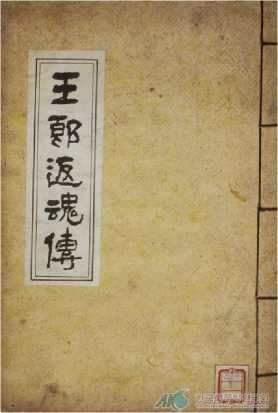 王郞返魂傳